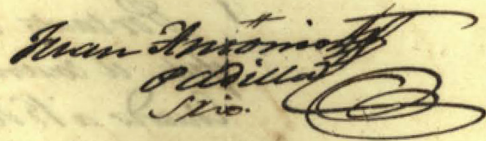 Juan Antonio
Padilla
Srio.